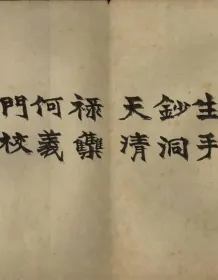 生手
鈔洞
天清
禄雧
何義
門校